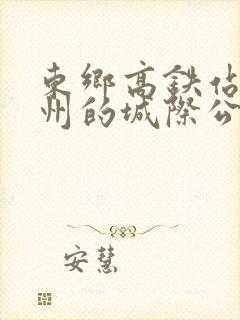 東鄉高鉄佔
州的城際公
安慧